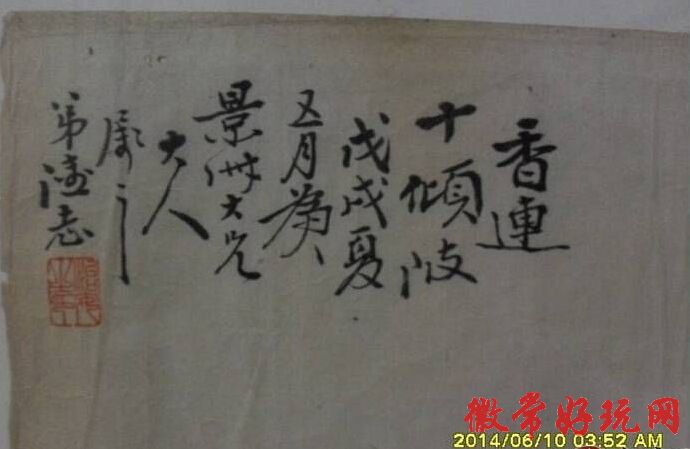 香連
十傾陂
戊戌夏
五月為
景州大兄
大人
弟志
徽常好玩网
2014/06/10 03:52 AM